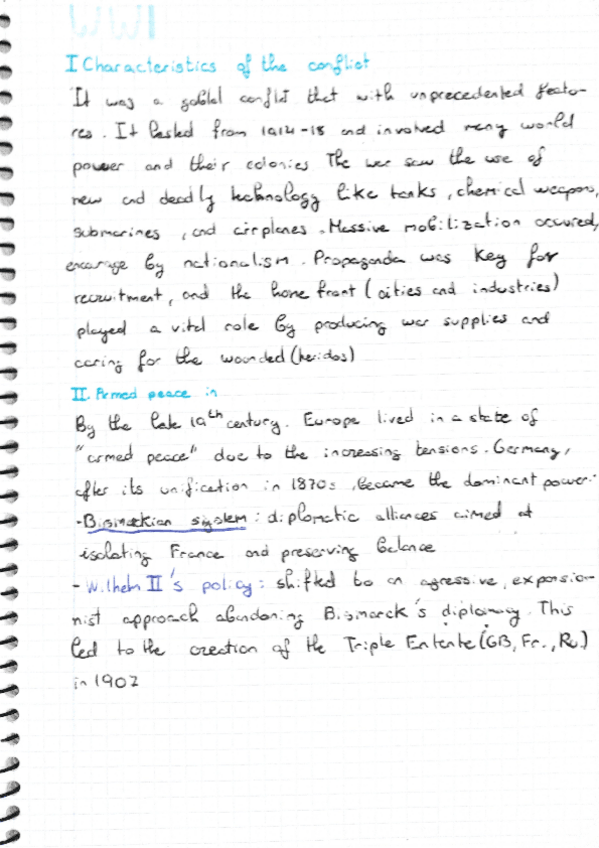 WWI
I Characteristics of the conflict
It was a goblal conflit that with unprecedented featu-
res. It lasted from 1914-18 and involved many world
power and their colonies The war saw the use of
new and deadly technology like tanks, chemical weapons,
submarines, and airplanes. Massive mobilization occured,
encourage by nationalism. Propaganda was key for
recruitment, and the home front (cities and industries)
played a vital role by producing war supplies and
caring for the wounded (heridos)
II. Armed peace in
By the late 19th century. Europe lived in a state of
"armed peace" due to the increasing tensions. Germany,
after its unification in 1870s, became the dominant power.
-Bismarkian system: diplomatic alliances aimed at
isolating France and preserving balance
-Wilhelm II's policy: shifted to an agressive, expansio-
nist approach abandoning Bismarck's diplomacy. This
led to the creation of the Triple Entente (GB, Fr., Ru.)
in 1907